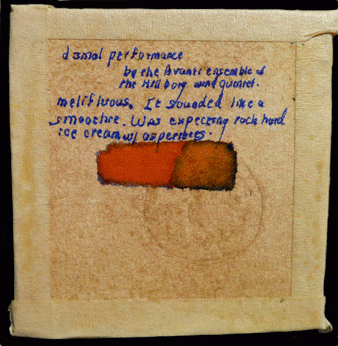 dismal performance
by the Avanti ensemble of
the Hillborg wind quintet.
melifluous. It sounded like a
smoothie. Was expecting rock hard
ice cream w/ asperities.